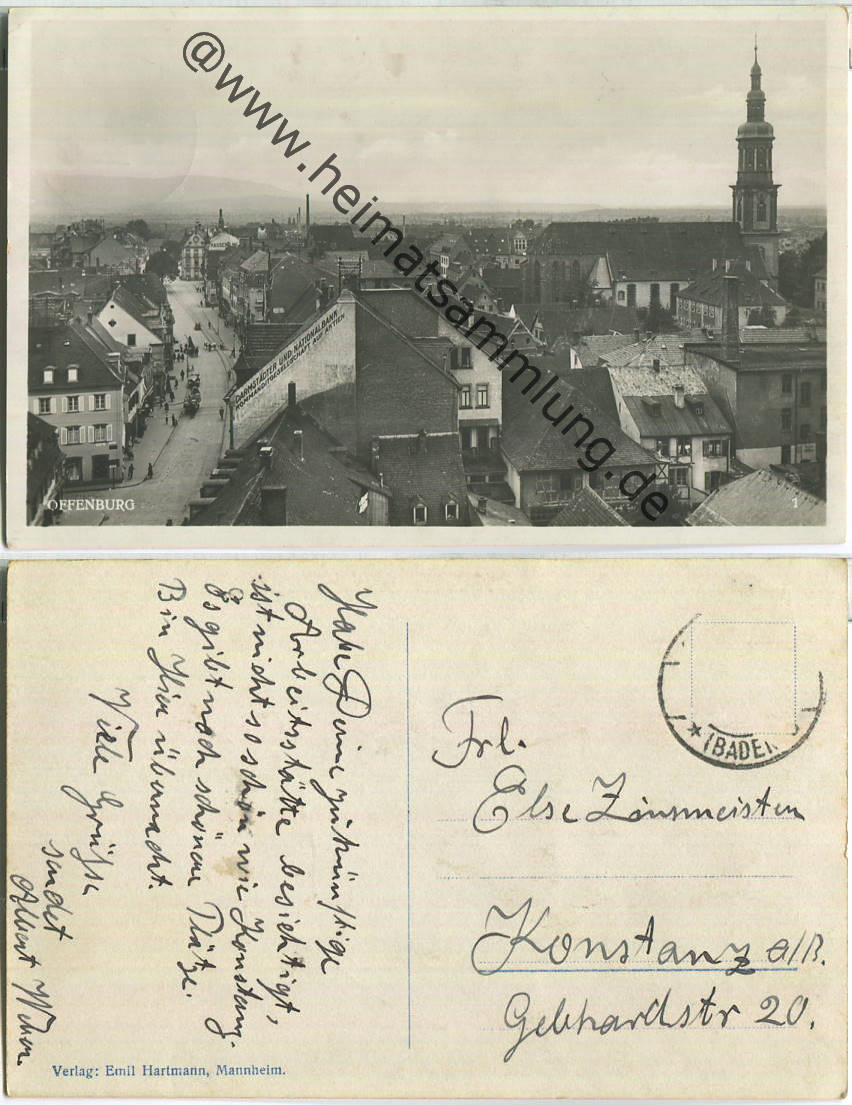 @www.heimatsammlung.de
PASSAGE
DARMSTÄDTER UND NATIONALBANK
KOMMANDITGESELLSCHAFT AUF AKTIEN
OFFENBURG
1
Habe Deine zukünftige
Arbeitsstätte besichtigt,
ist nicht so schön wie Konstanz.
Es gibt noch schönere Plätze.
Bin Hier übernacht.
Viele Grüße
sendet
Albert
Verlag: Emil Hartmann, Mannheim.
* (BADEN)
Frl.
Else Zinsmeister
Konstanz a/B.
Gebhardstr 20.